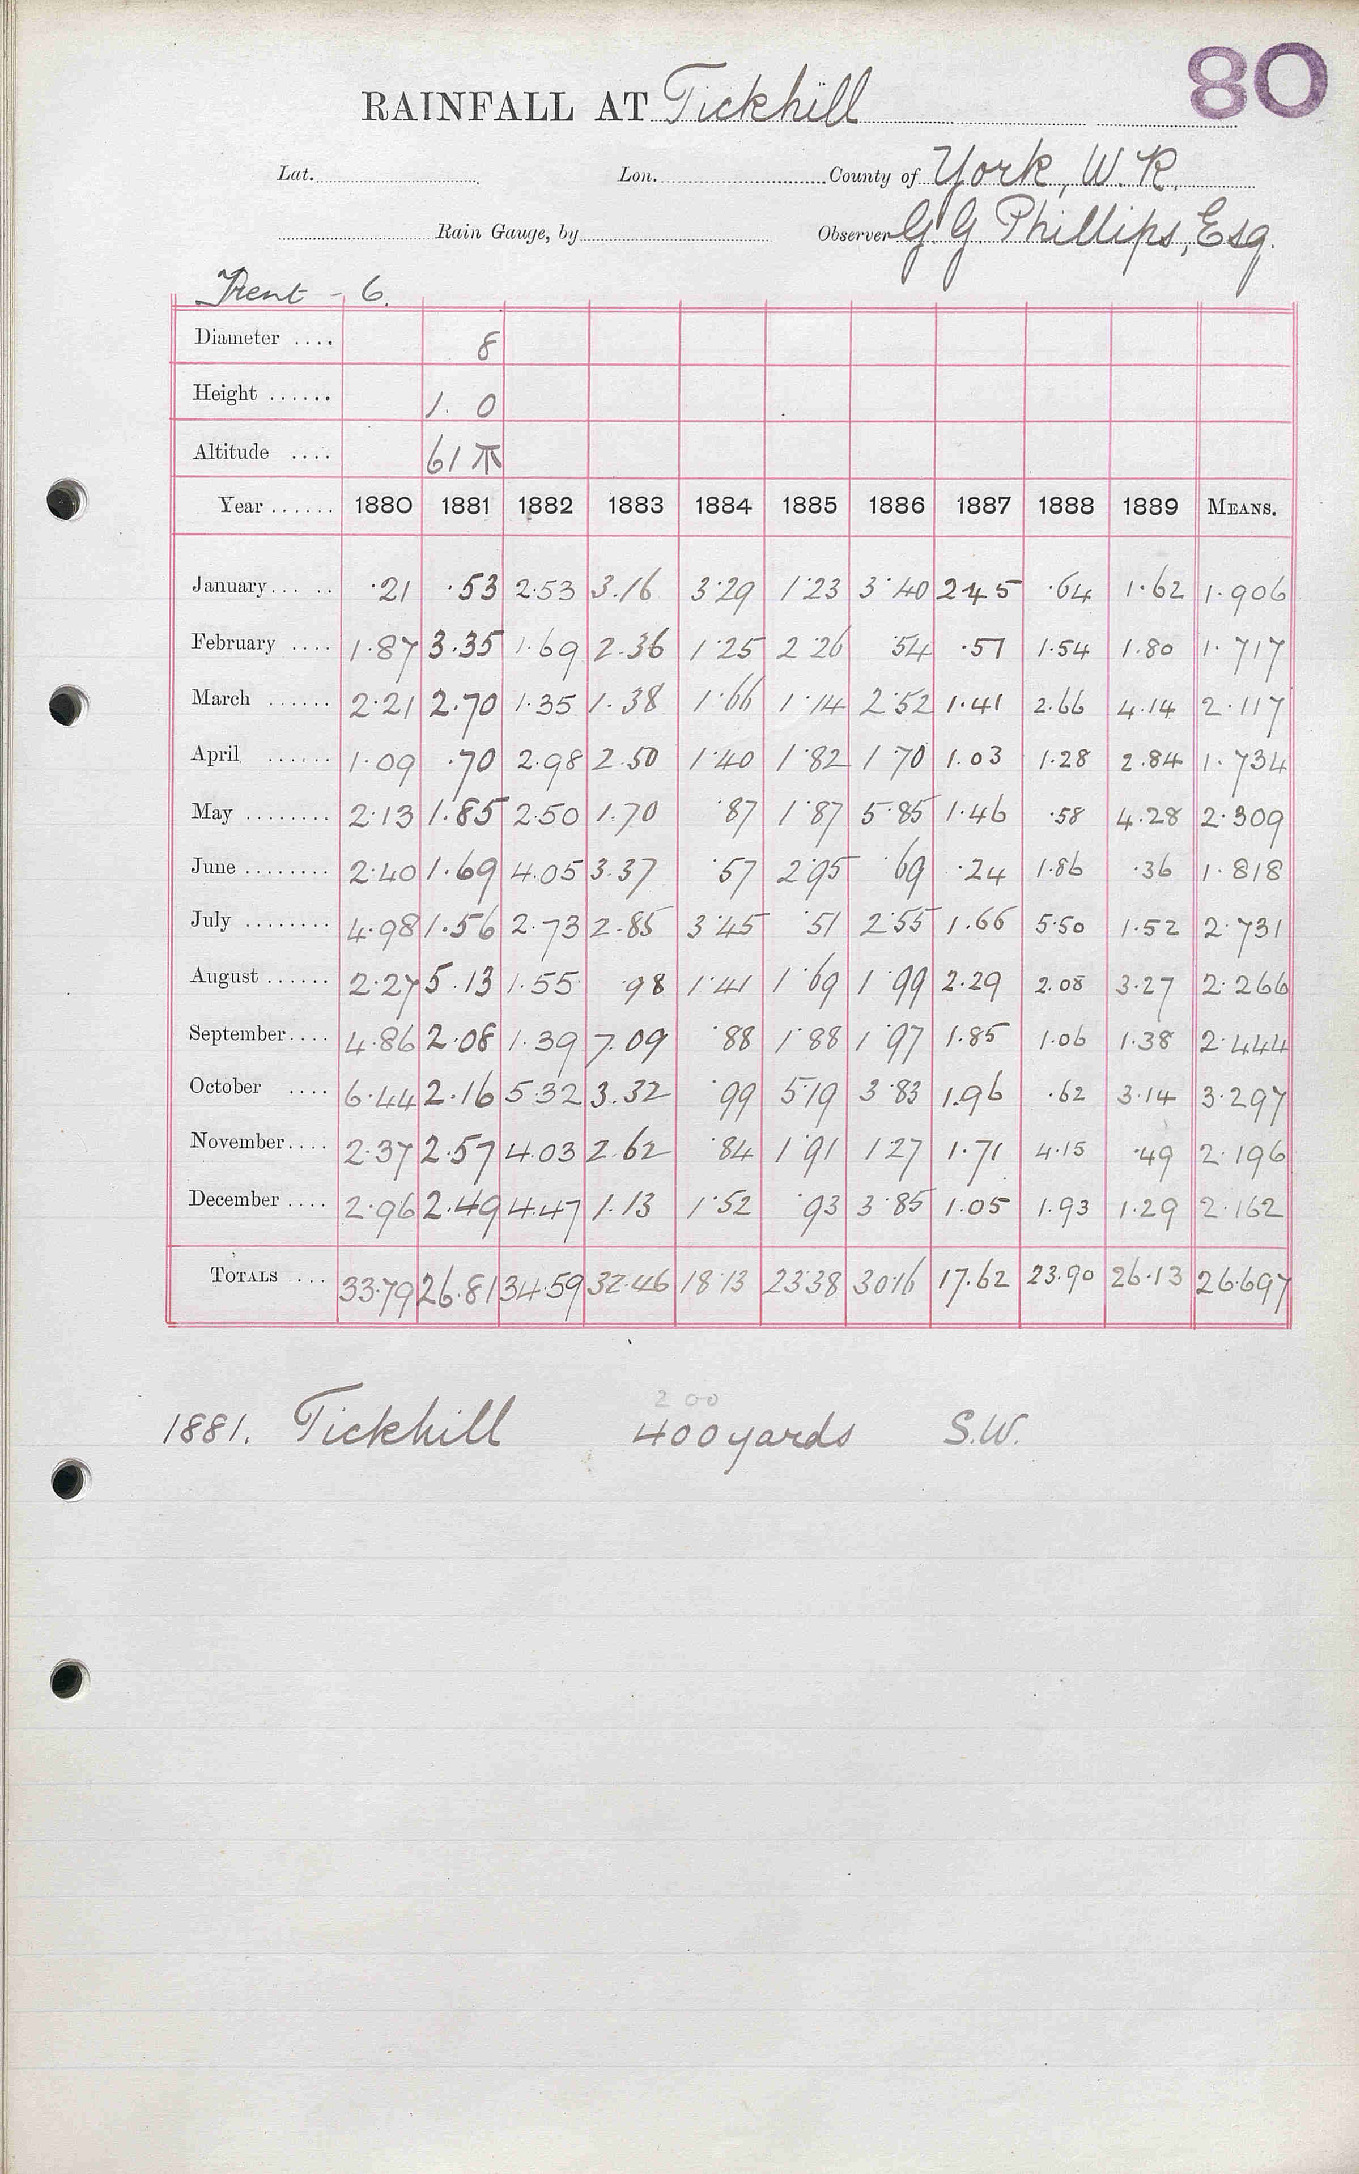 80
RAINFALL AT Tickhill
Lat. Lon. County of York, W. R.
Rain Gauge, by Observer G G Phillips, Esq.
Trent - 6.
Diameter .... 8
Height ...... 1. 0
Altitude .... 61
Year ...... 1880 1881 1882 1883 1884 1885 1886 1887 1888 1889 MEANS.
January... .. ·21 ·53 2·53 3·16 3·29 1·23 3·40 2·45 ·64 1·62 1·906
February .... 1·87 3·35 1·69 2·36 1·25 2·26 ·54 ·57 1·54 1·80 1·717
March ...... 2·21 2·70 1·35 1·38 1·66 1·14 2·52 1·41 2·66 4·14 2·117
April ...... 1·09 ·70 2·98 2·50 1·40 1·82 1·70 1·03 1·28 2·84 1·734
May ........ 2·13 1·85 2·50 1·70 ·87 1·87 5·85 1·46 ·58 4·28 2·309
June ........ 2·40 1·69 4·05 3·37 ·57 2·95 ·69 ·24 1·86 ·36 1·818
July ........ 4·98 1·56 2·73 2·85 3·45 ·51 2·55 1·66 5·50 1·52 2·731
August ...... 2·27 5·13 1·55 ·98 1·41 1·69 1·99 2·29 2·08 3·27 2·266
September.... 4·86 2·08 1·39 7·09 ·88 1·88 1·97 1·85 1·06 1·38 2·444
October .... 6·44 2·16 5·32 3·32 ·99 5·19 3·83 1·96 ·62 3·14 3·297
November.... 2·37 2·57 4·03 2·62 ·84 1·91 1·27 1·71 4·15 ·49 2·196
December .... 2·96 2·49 4·47 1·13 1·52 ·93 3·85 1·05 1·93 1·29 2·162
TOTALS ... 33·79 26·81 34·59 32·46 18·13 23·38 30·16 17·62 23·90 26·13 26·697
2 00
1881. Tickhill 400 yards S.W.